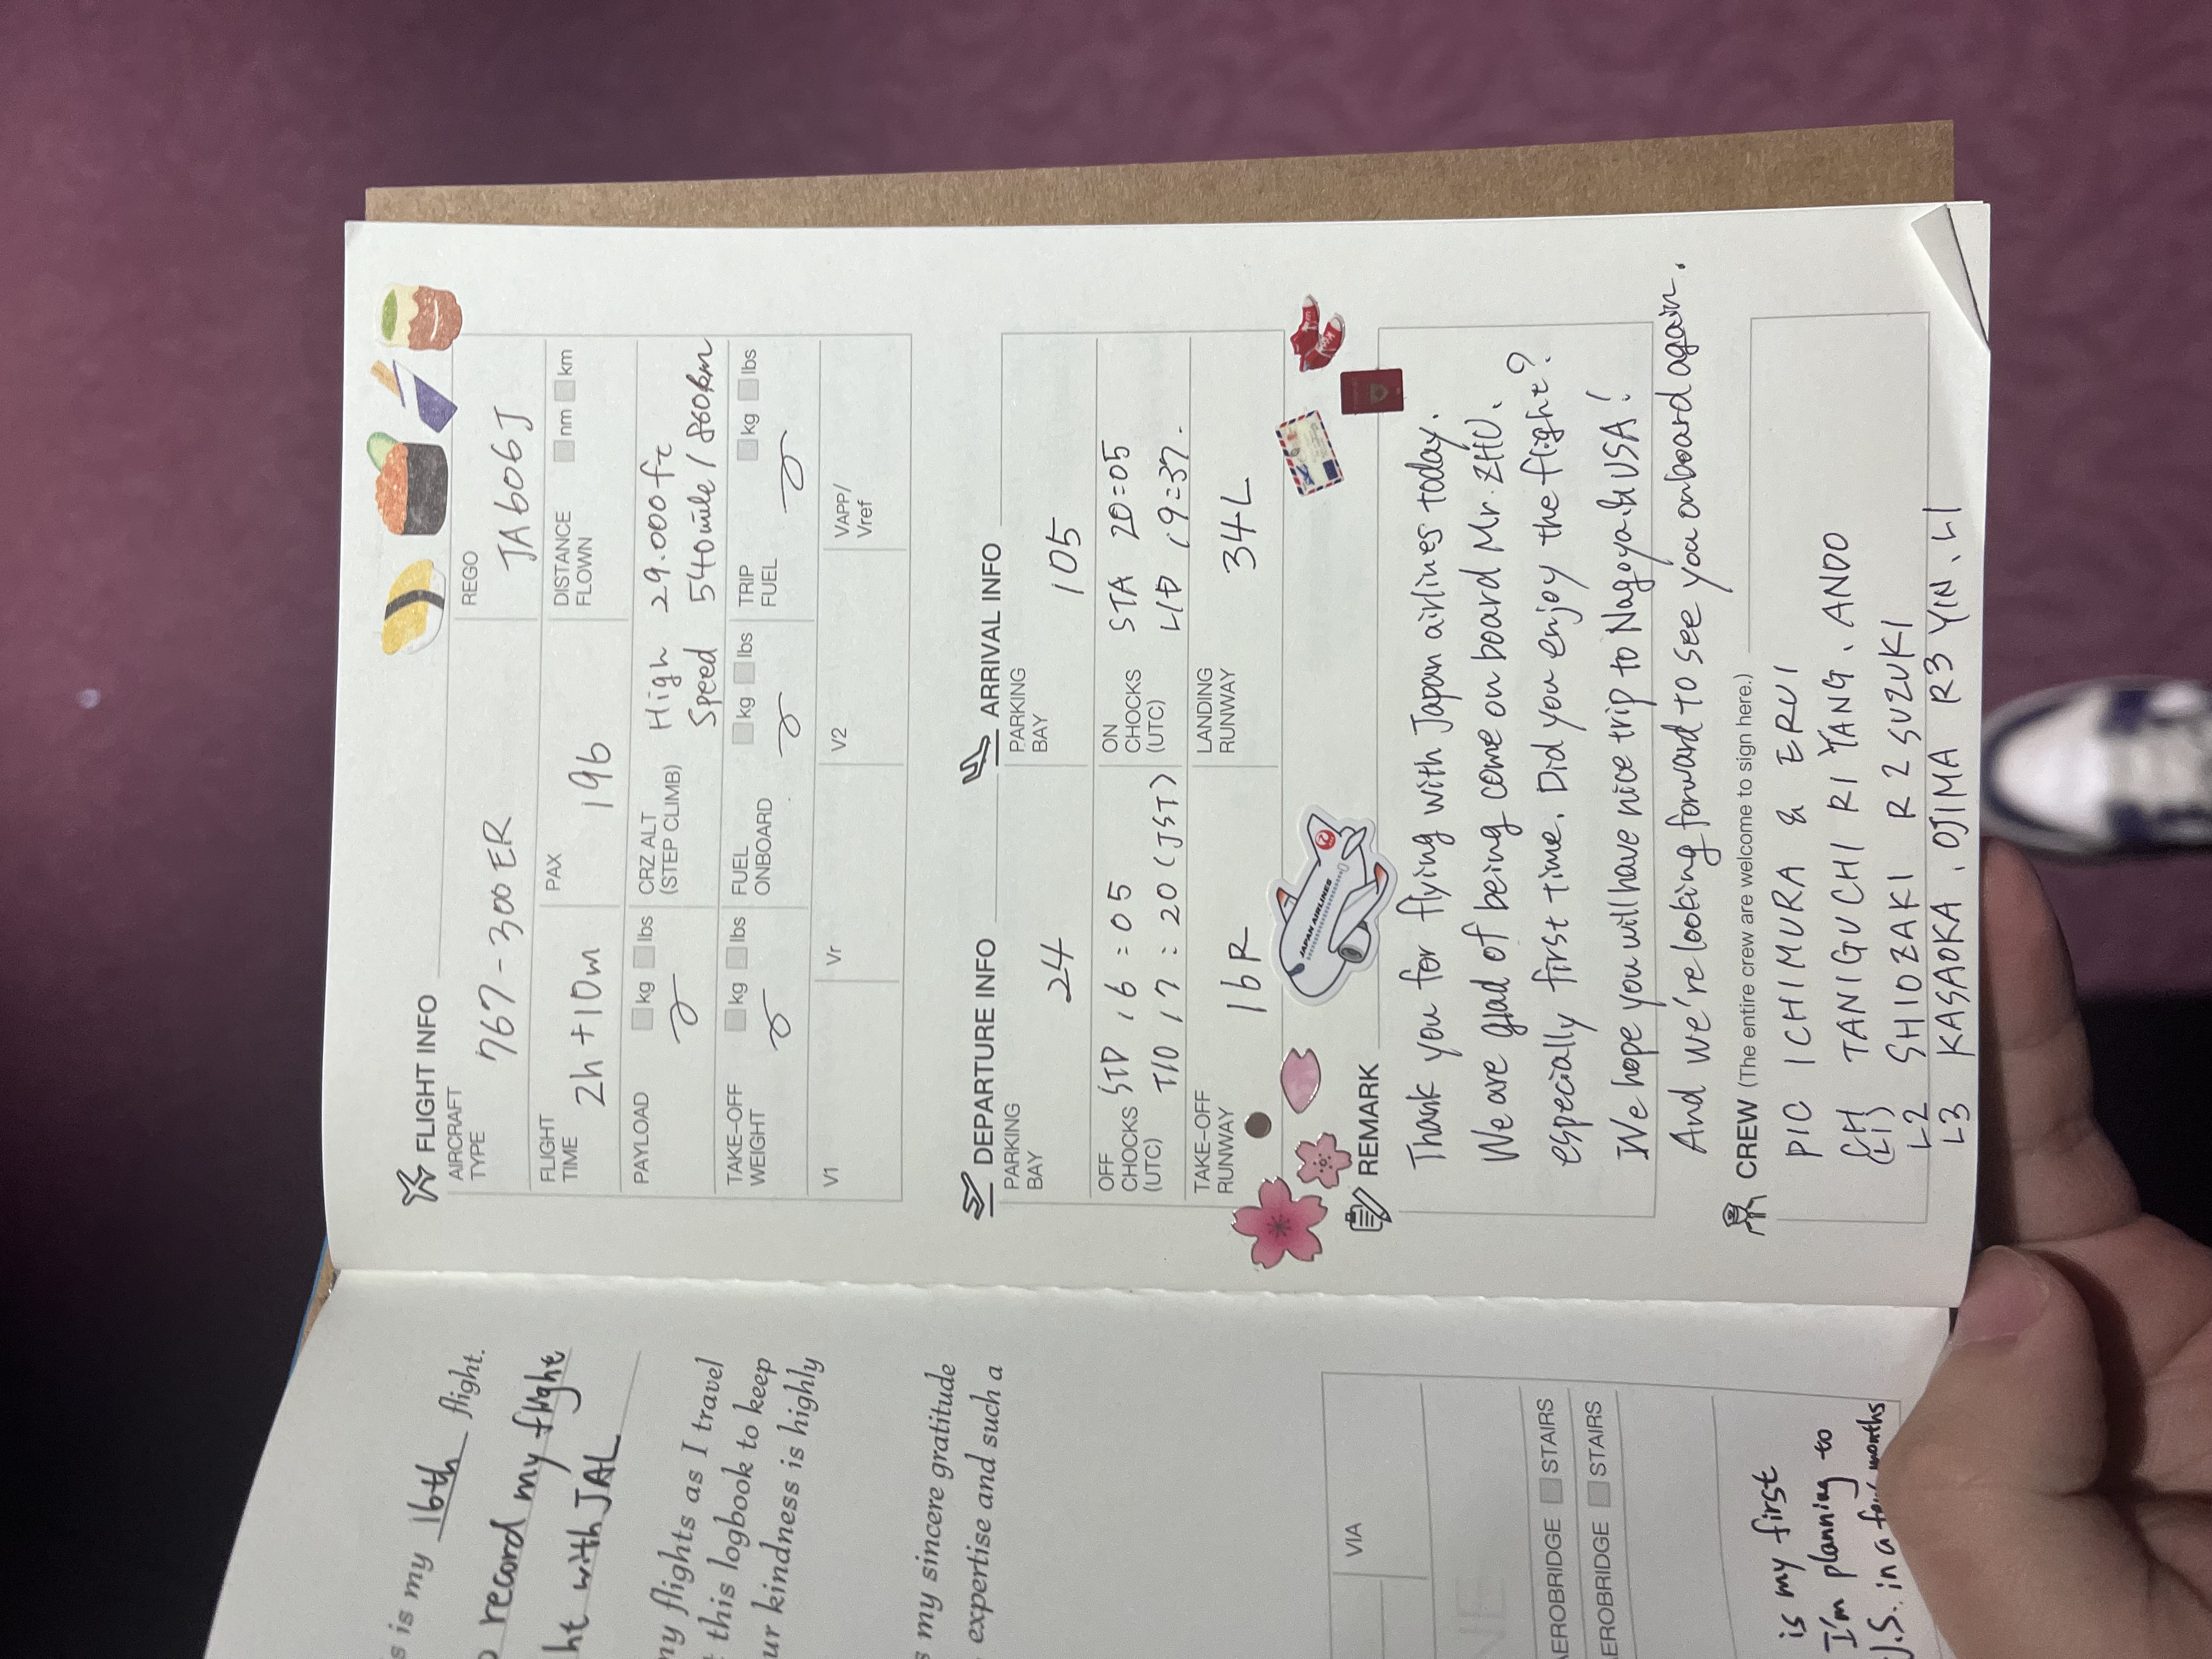 s is my 16th flight.
record my flight
ht with JAL
my flights as I travel
this logbook to keep
ur kindness is highly
my sincere gratitude
expertise and such a
VIA
AEROBRIDGE STAIRS
AEROBRIDGE STAIRS
is my first
I'm planning to
U.S. in a few months
FLIGHT INFO
AIRCRAFT TYPE 767-300ER REGO JA606J
FLIGHT TIME 2h+10m PAX 196 DISTANCE FLOWN nm km
PAYLOAD kg lbs CRZ ALT (STEP CLIMB) High 29.000ft
Speed 540mile / 860km
TAKE-OFF WEIGHT kg lbs FUEL ONBOARD kg lbs TRIP FUEL kg lbs
V1 Vr V2 VAPP/Vref
DEPARTURE INFO
PARKING BAY 24
OFF CHOCKS (UTC) STD 16:05
T/O 17:20 (JST)
TAKE-OFF RUNWAY 16R
ARRIVAL INFO
PARKING BAY 105
ON CHOCKS (UTC) STA 20:05
L/D 19:37.
LANDING RUNWAY 34L
JAPAN AIRLINES
REMARK
Thank you for flying with Japan airlines today.
We are glad of being come on board Mr. ZHU.
especially first time. Did you enjoy the flight?
We hope you will have nice trip to Nagoya. USA!
And we're looking forward to see you onboard again.
CREW (The entire crew are welcome to sign here.)
PIC ICHIMURA & ERUI
CH (L1) TANIGUCHI R1 YANG. ANDO
L2 SHIOZAKI R2 SUZUKI
L3 KASAOKA. OJIMA R3 YIN. LI